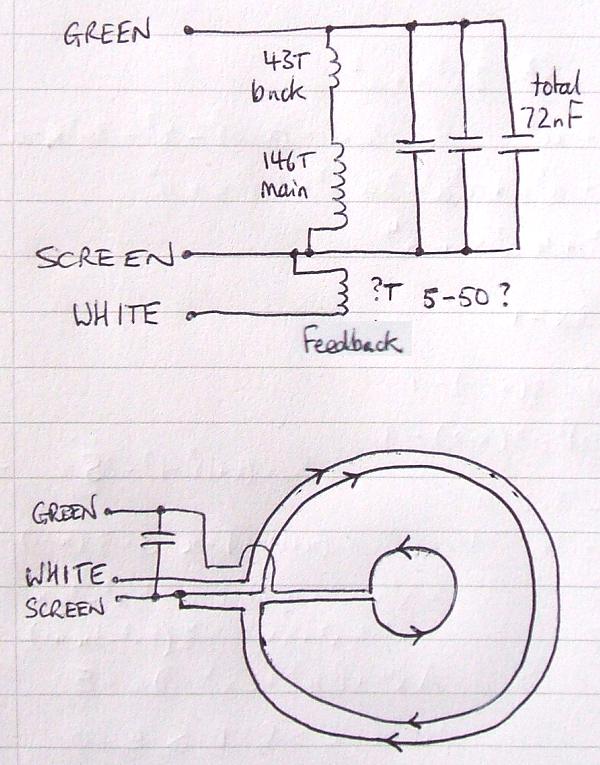 GREEN
43T
buck
total
72nF
146T
main
SCREEN
?T 5-50?
WHITE
Feedback
GREEN
WHITE
SCREEN